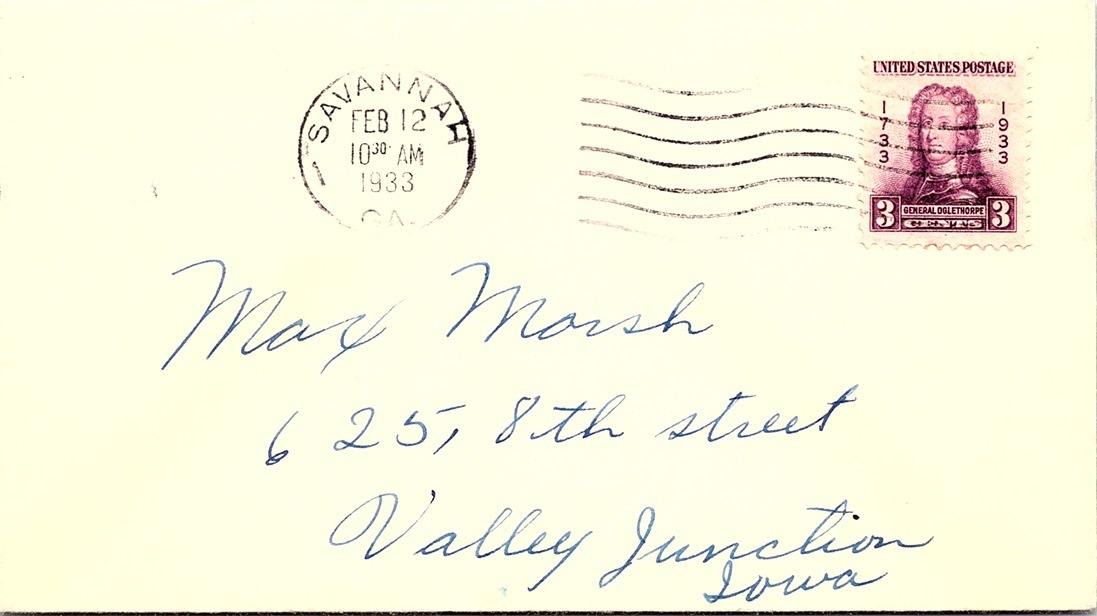 SAVANNAH
FEB 12
10³⁰ AM
1933
GA.
UNITED STATES POSTAGE
1733
1933
3 GENERAL OGLETHORPE 3
CENTS
Max Marsh
625, 8th street
Valley Junction
Iowa